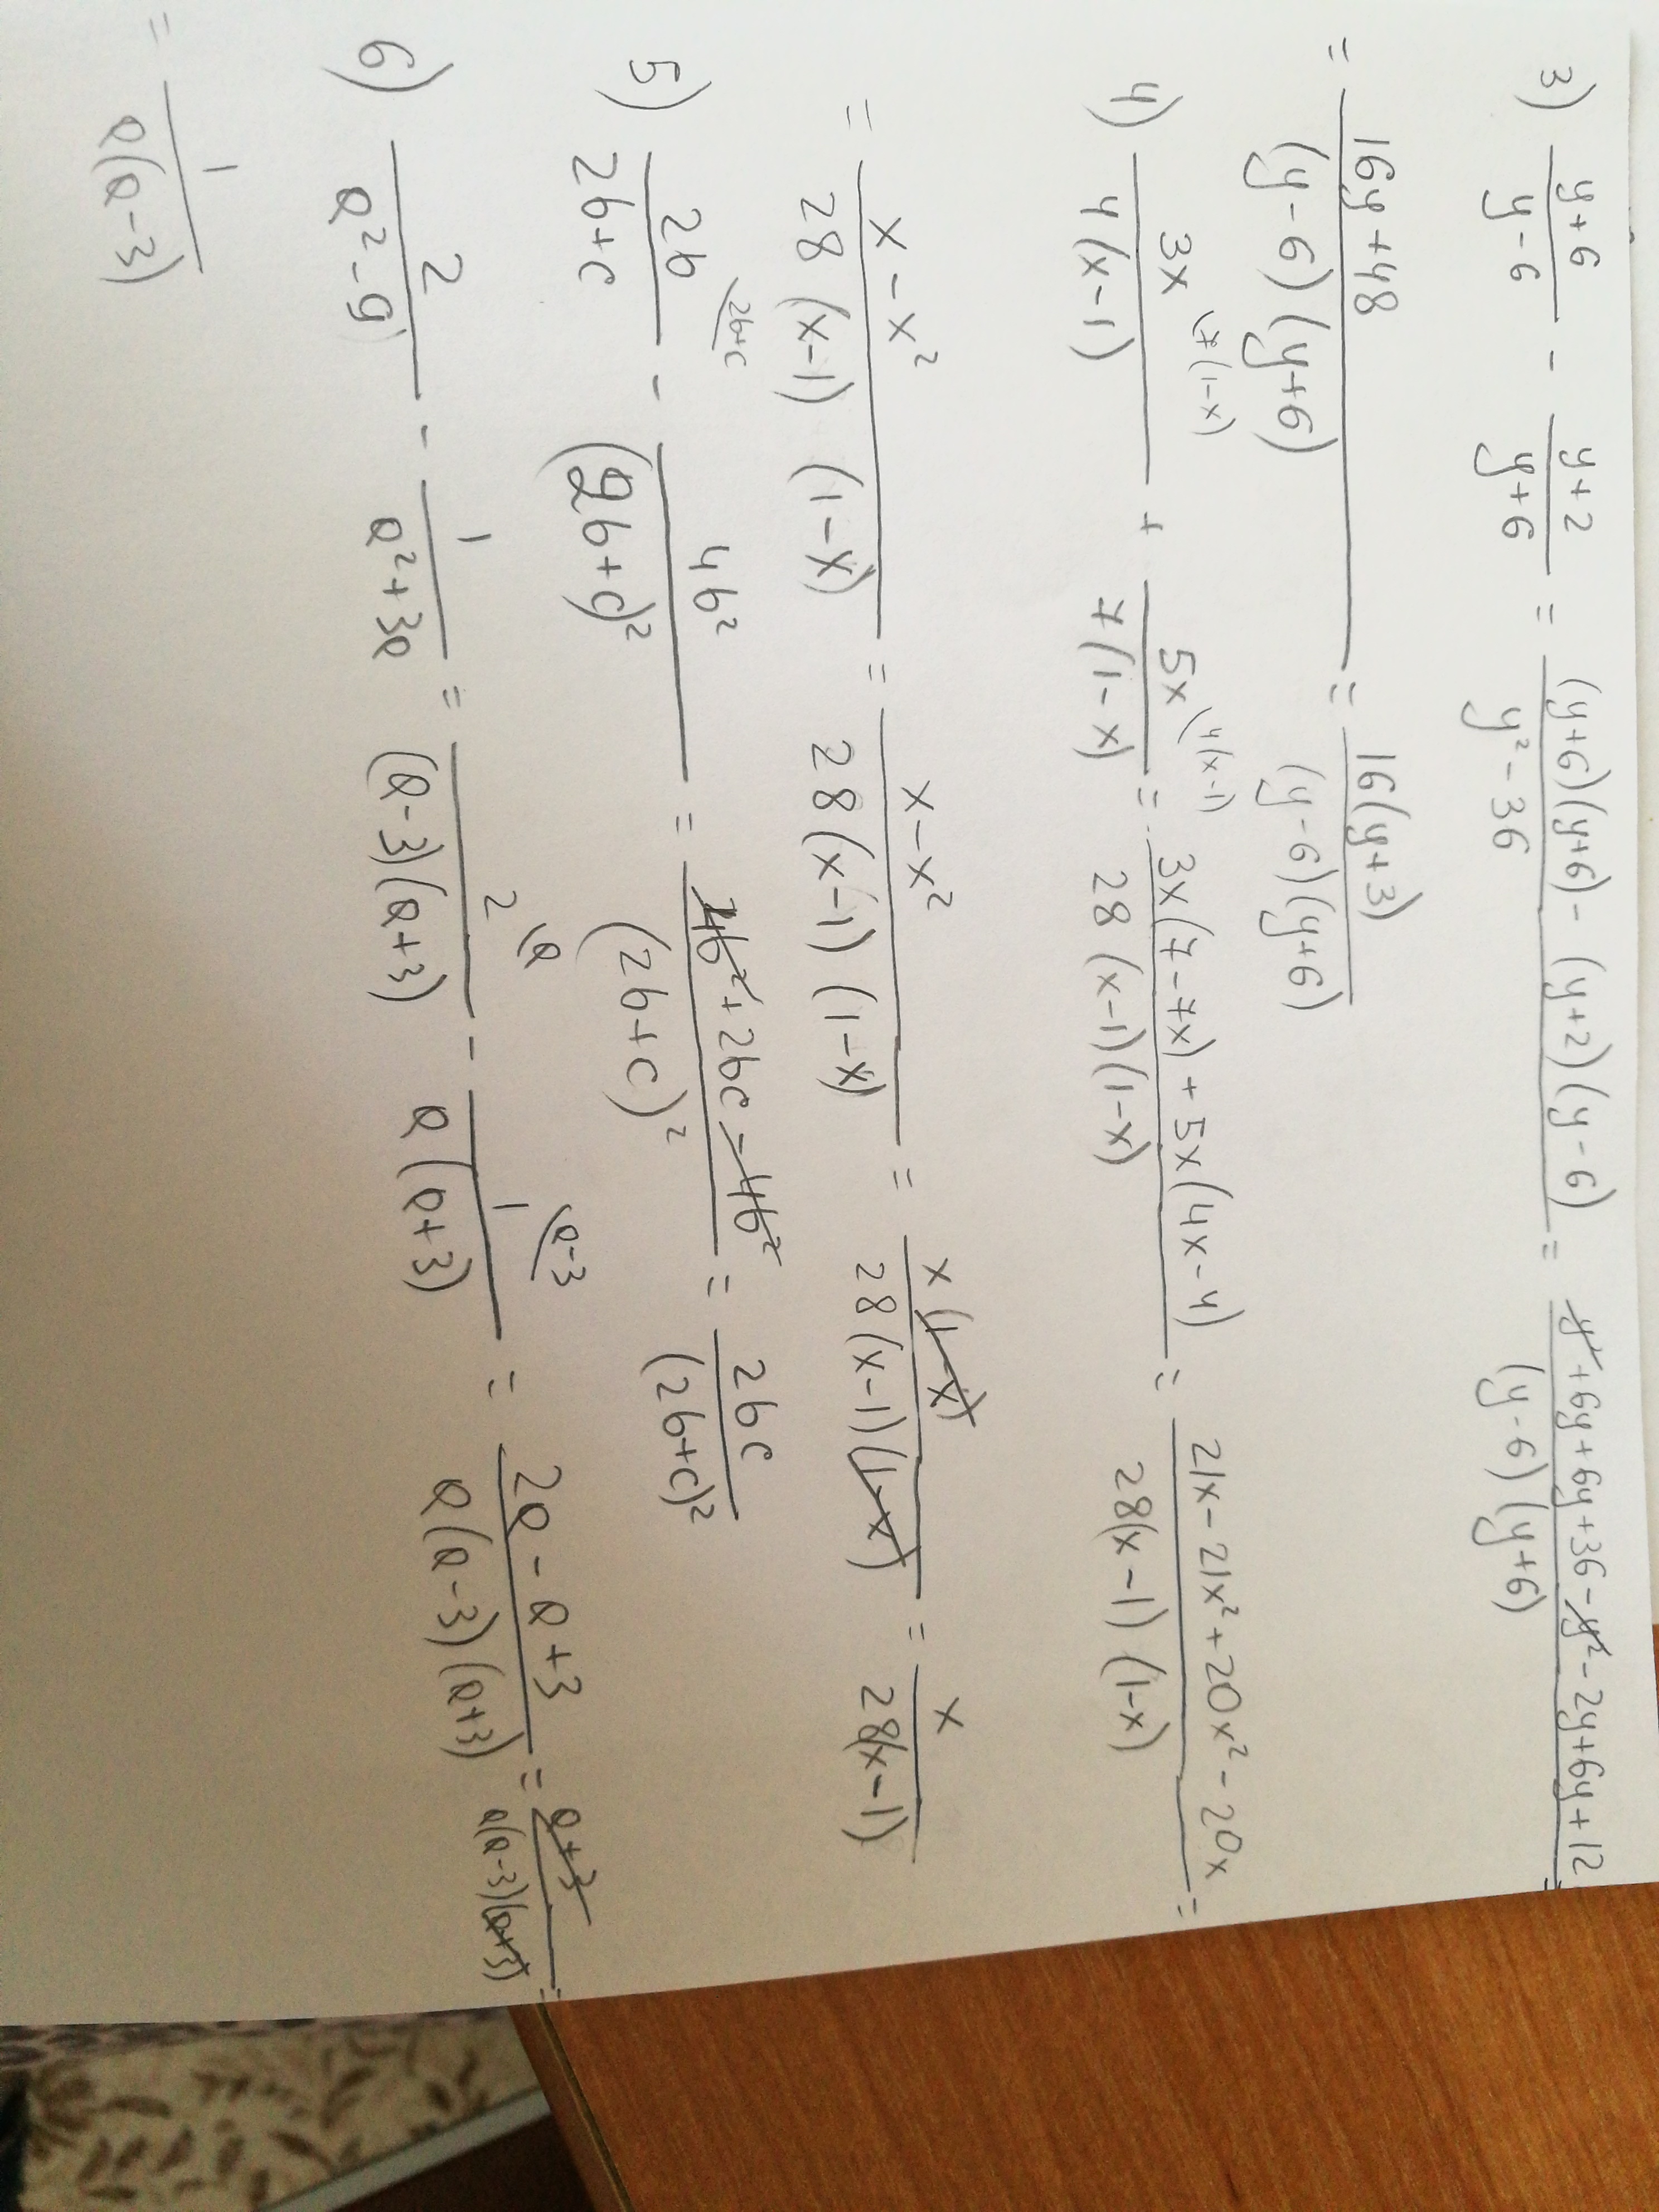 3) (y+6)/(y-6) - (y+2)/(y+6) = ((y+6)(y+6) - (y+2)(y-6))/(y² - 36) = (y²+6y+6y+36-y²-2y+6y+12)/((y-6)(y+6)) =
= (16y+48)/((y-6)(y+6)) = 16(y+3)/((y-6)(y+6))
4) 3x/(4(x-1)) \7(1-x) + 5x/(7(1-x)) \4(x-1) = (3x(7-7x)+5x(4x-4))/(28(x-1)(1-x)) = (21x-21x²+20x²-20x)/(28(x-1)(1-x)) =
= (x-x²)/(28(x-1)(1-x)) = (x-x²)/(28(x-1)(1-x)) = x(1-x)/(28(x-1)(1-x)) = x/(28(x-1))
5) 2b/(2b+c) \2b+c - 4b²/(2b+c)² = (4b²+2bc-4b²)/(2b+c)² = 2bc/(2b+c)²
6) 2/(a²-9) - 1/(a²+3a) = 2/((a-3)(a+3)) \a - 1/(a(a+3)) \a-3 = (2a-a+3)/(a(a-3)(a+3)) = (a+3)/(a(a-3)(a+3)) =
= 1/(a(a-3))